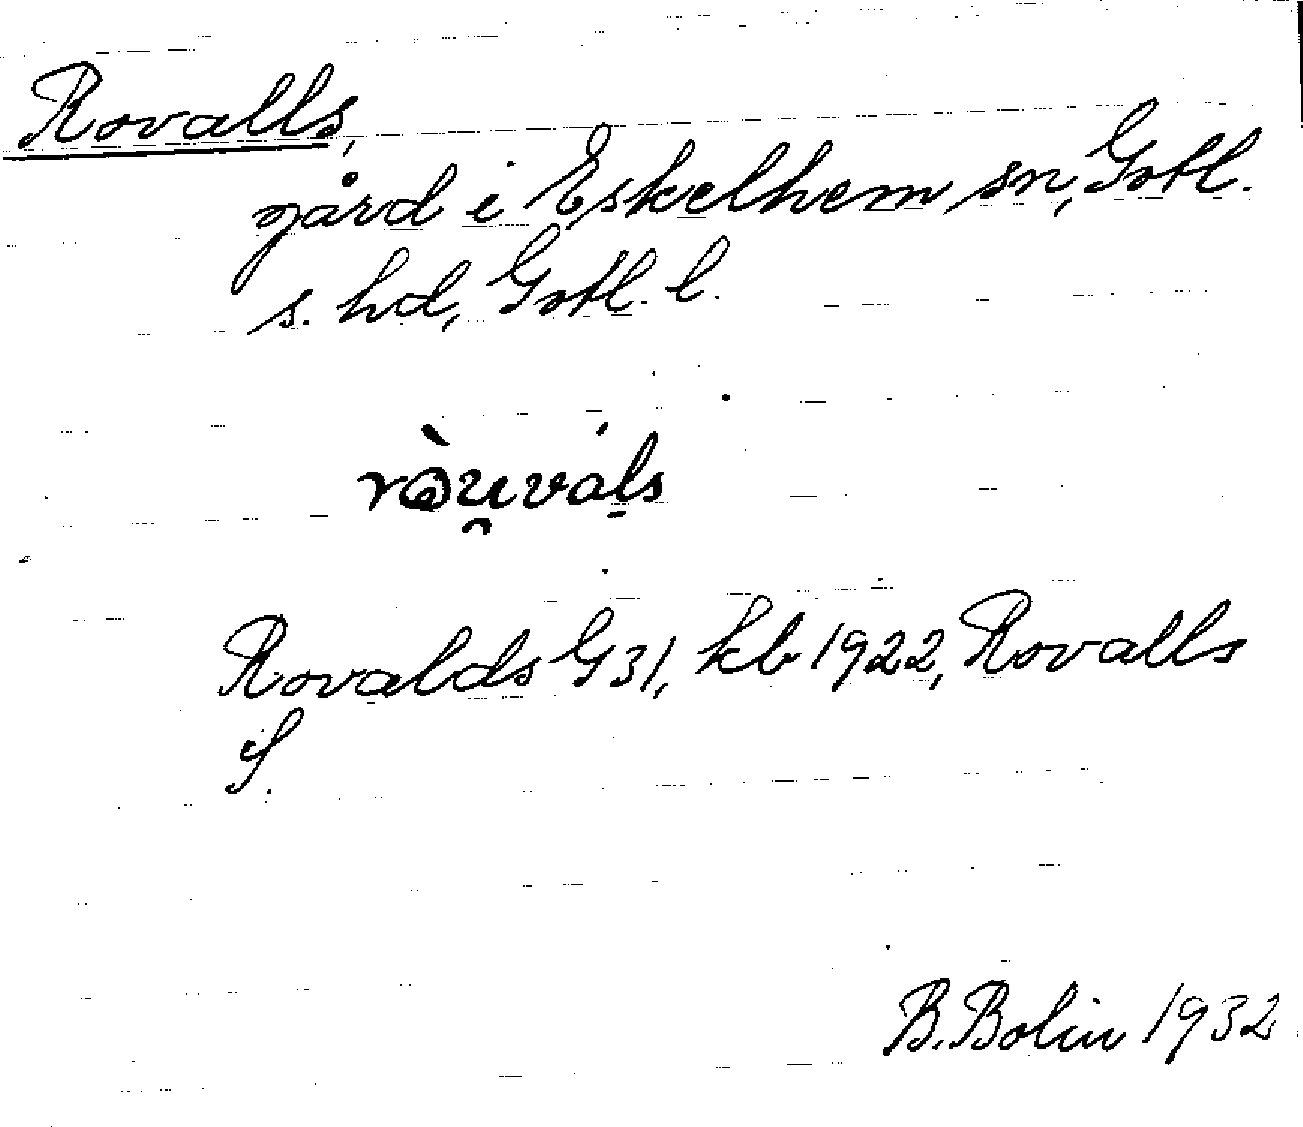 Rovalls,
gård i Eskelhem sn, Gotl.
s. hd, Gotl. l.
ròu̯váls
Rovalds G31, kb 1922, Rovalls
S.
B. Bolin 1932